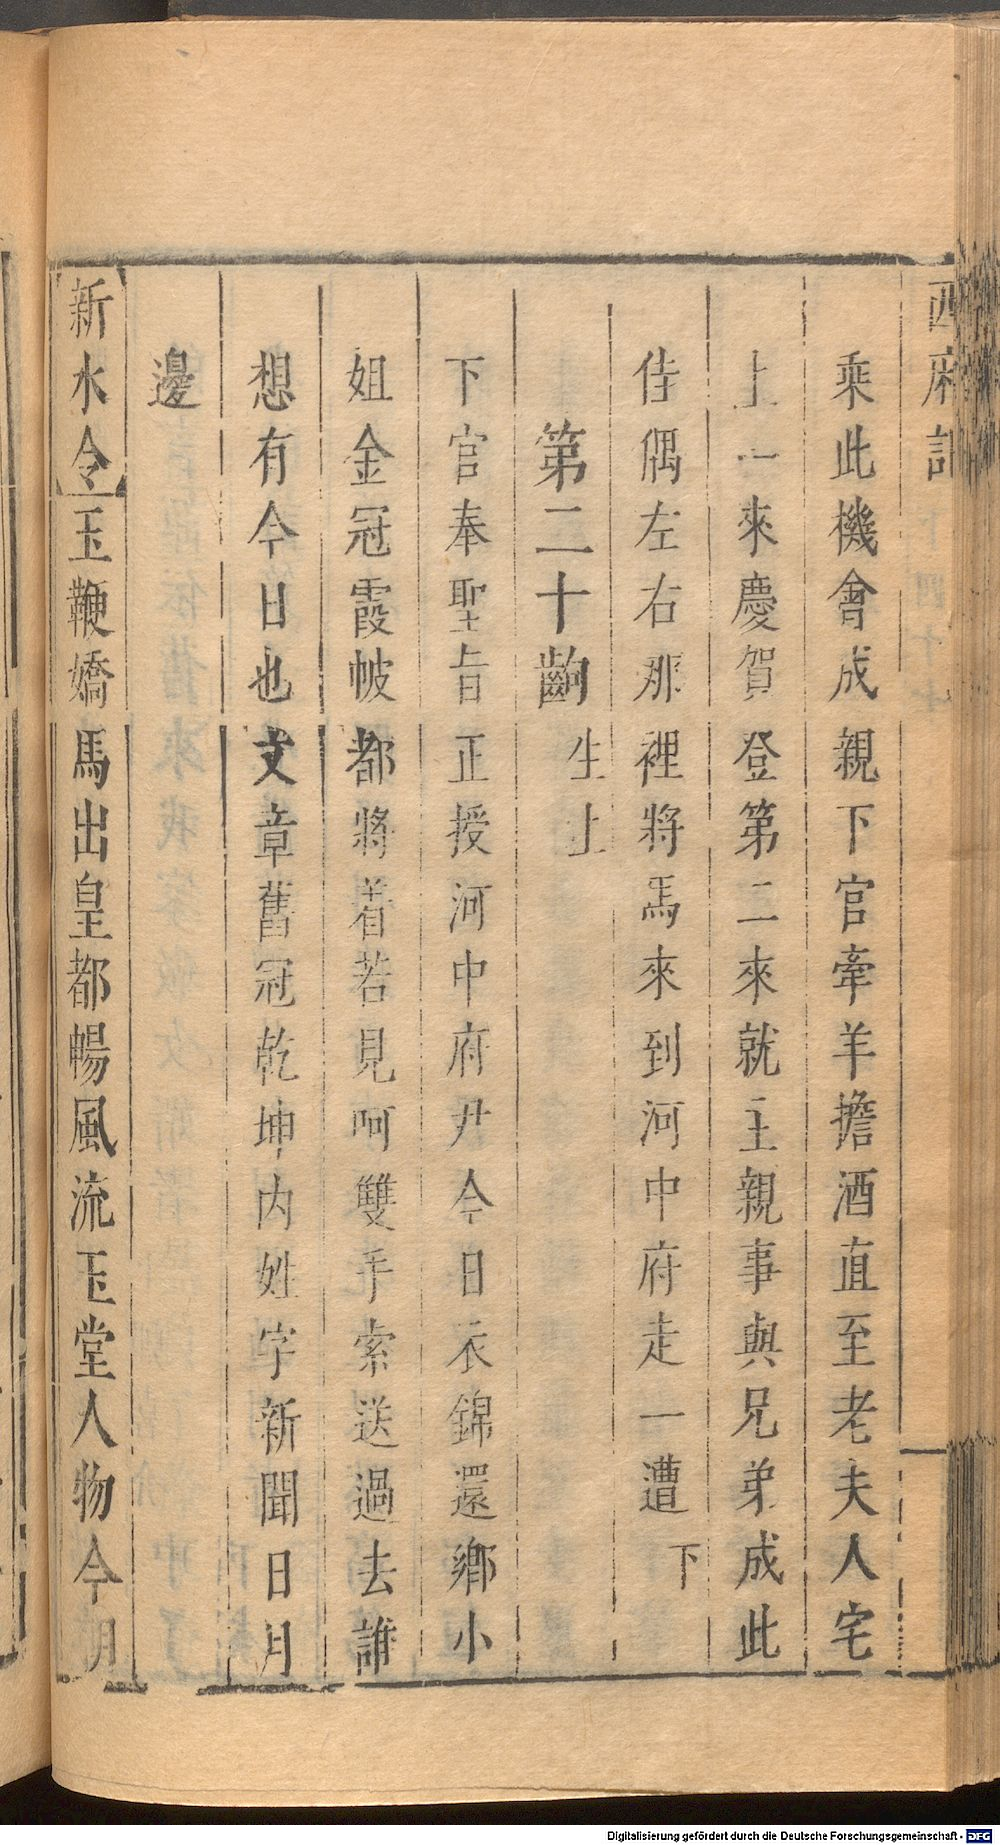 西廂記
乘此機會成親下官牽羊擔酒直至老夫人宅
上一來慶賀登第二來就主親事與兄弟成此
佳偶左右那裡將馬來到河中府走一遭下
第二十齣
生上
下官奉聖旨正授河中府尹今日衣錦還鄉小
姐金冠霞帔都將着若見呵雙手索送過去誰
想有今日也文章舊冠乾坤內姓字新聞日月
邊
新水令玉鞭嬌馬出皇都暢風流玉堂人物今朝
Digitalisierung gefördert durch die Deutsche Forschungsgemeinschaft - DFG